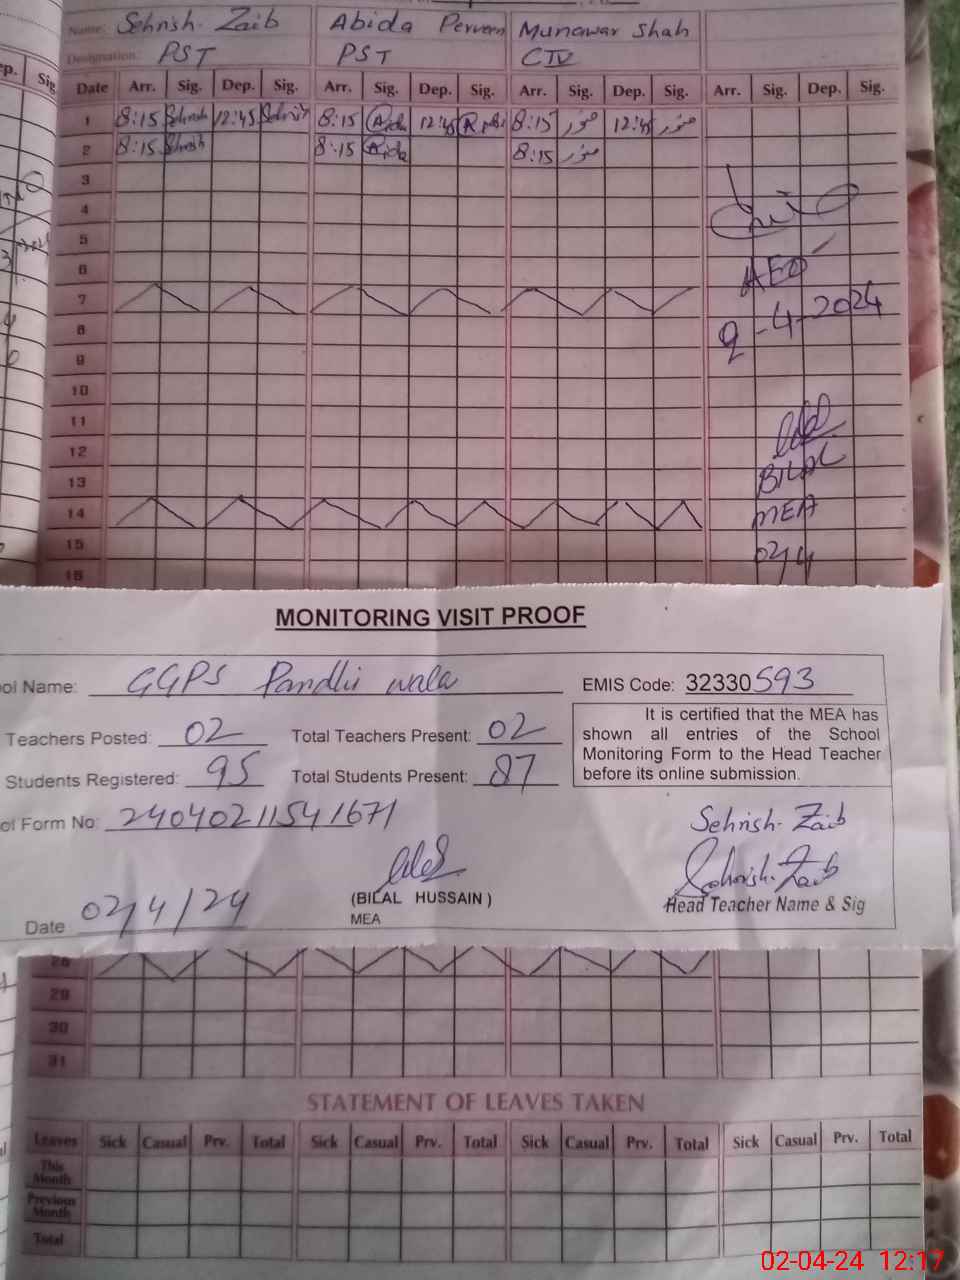 Name: Sehrish. Zaib Abida Perveen Munawar Shah
Designation: PST PST CTV
Date Arr. Sig. Dep. Sig. Arr. Sig. Dep. Sig. Arr. Sig. Dep. Sig. Arr. Sig. Dep. Sig.
1 8:15 Sehrish 12:45 Sehrish 8:15 Aida 12:45 8:15 منور 12:45 منور
2 8:15 Sehrish 8:15 Aida 8:15 منور
3
4
5
6
AEO
7
8
2-4-2024
9
10
11
12
BILAL
13
14
MEA
15
02/4
16
MONITORING VISIT PROOF
ol Name: GGPS Pandhi wala EMIS Code: 32330593
Teachers Posted: 02 Total Teachers Present: 02
Students Registered: 95 Total Students Present: 87
It is certified that the MEA has
shown all entries of the School
Monitoring Form to the Head Teacher
before its online submission.
ol Form No: 24040211541671
Sehrish. Zaib
Sehrish. Zaib
Head Teacher Name & Sig
(BILAL HUSSAIN )
MEA
Date 02/4/24
28
29
30
31
STATEMENT OF LEAVES TAKEN
Leaves Sick Casual Prv. Total Sick Casual Prv. Total Sick Casual Prv. Total Sick Casual Prv. Total
This
Month
Previous
Month
Total
02-04-24 12:17